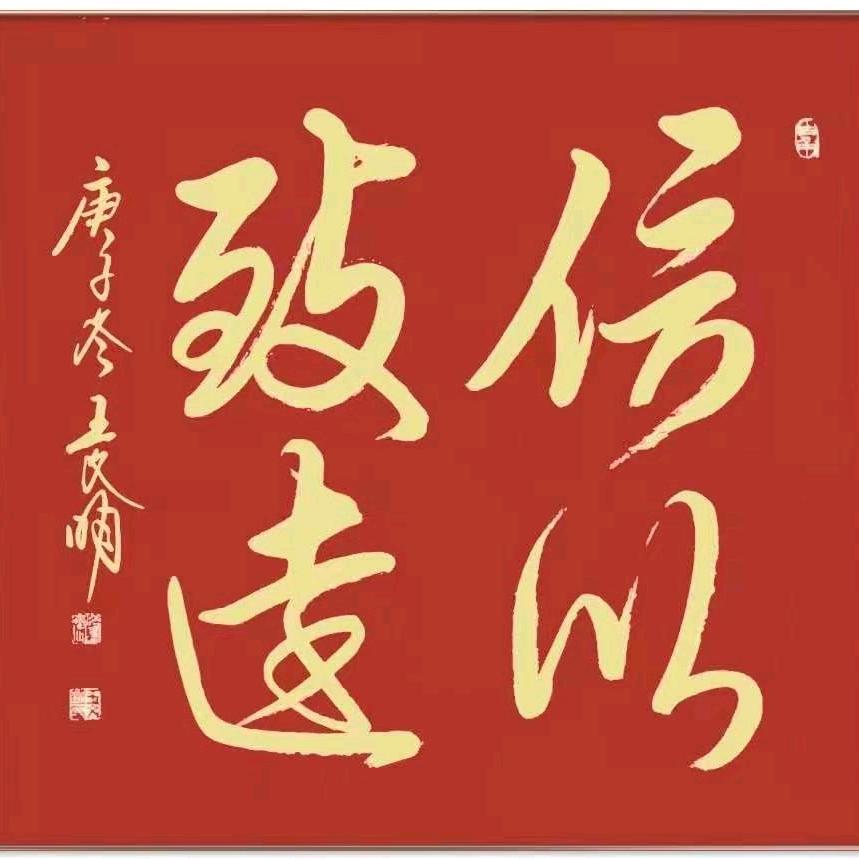 信以
致远
庚子冬王良明